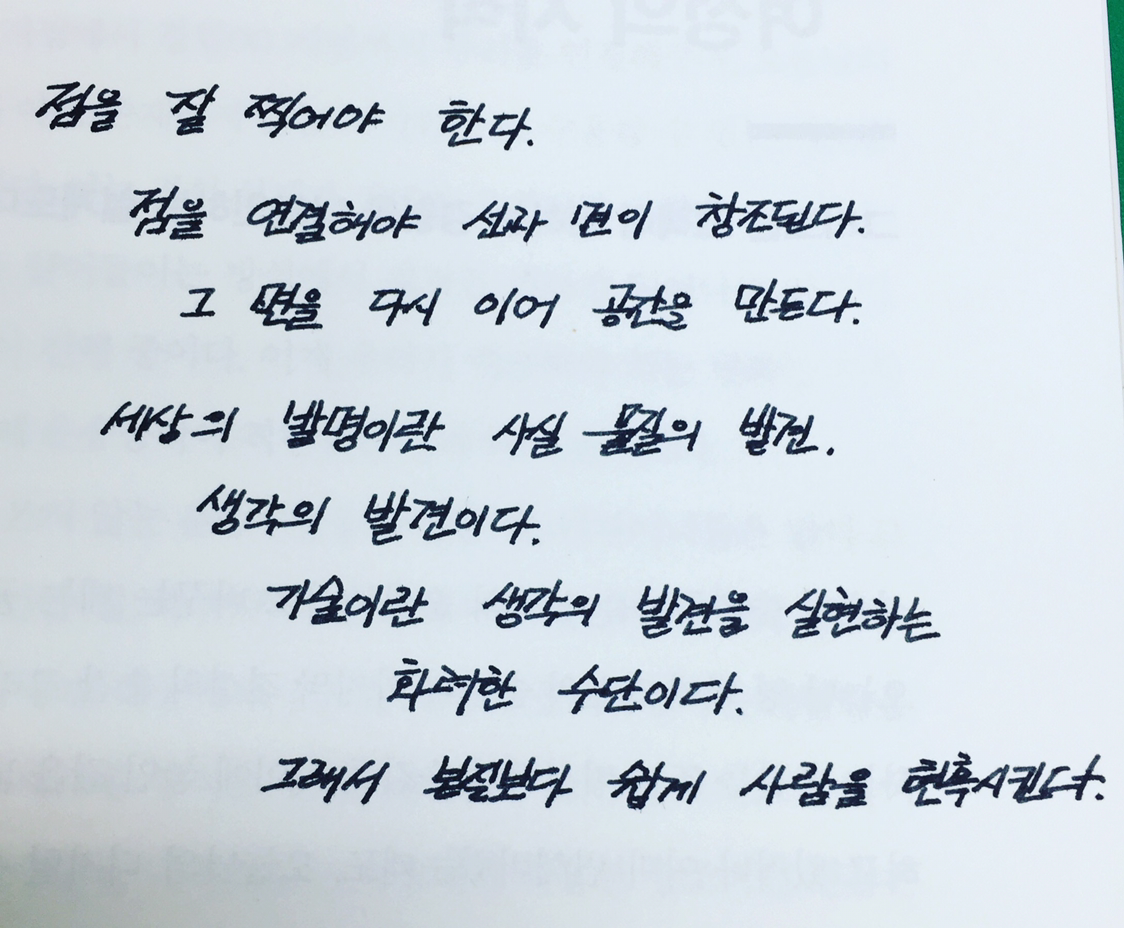 점을 잘 찍어야 한다.
점을 연결해야 선과 면이 창조된다.
그 면을 다시 이어 공간을 만든다.
세상의 발명이란 사실 물질의 발견.
생각의 발견이다.
기술이란 생각의 발견을 실현하는
화려한 수단이다.
그래서 본질보다 쉽게 사람을 현혹시킨다.